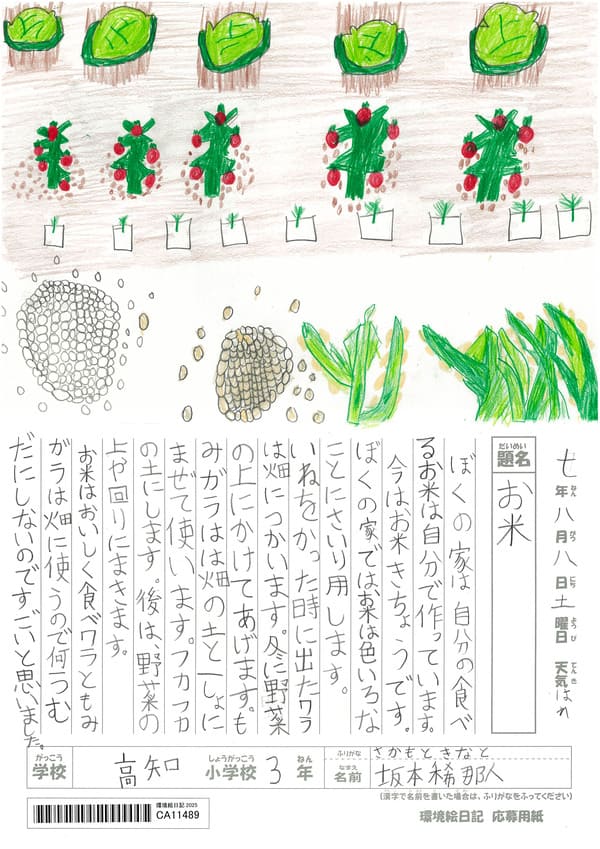 七年八月八日土曜日 天気はれ
ねん がつ にち ようび てんき
だいめい
題名 お米
ぼくの家は自分の食べ
るお米は自分で作っています。
今はお米きちょうです。
ぼくの家では、お米は色いろな
ことにさいり用します。
いねをかった時に出たワラ
は畑につかいます。冬に野菜
の上にかけてあげます。も
みガラはは畑の土といっしょに
まぜて使います。フカフカ
の土にします。後は、野菜の
上や回りにまきます。
お米はおいしく食べワラともみ
ガラは畑に使うので何つむ
だにしないのですごいと思いました。
がっこう しょうがっこう ねん
学校 高知 小学校 3年
ふりがな さかもと きなと
なまえ
名前 坂本稀那人
(漢字で名前を書いた場合は、ふりがなをふってください)
環境絵日記 2025
CA11489
環境絵日記 応募用紙